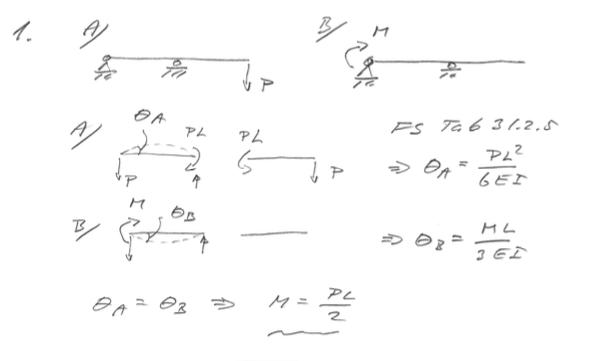 1. A/ B/ M
P
A/ θA PL PL P P
FS Tab 31.2.5
⇒ θA = PL²/6EI
B/ M θB
⇒ θB = ML/3EI
θA = θB ⇒ M = PL/2